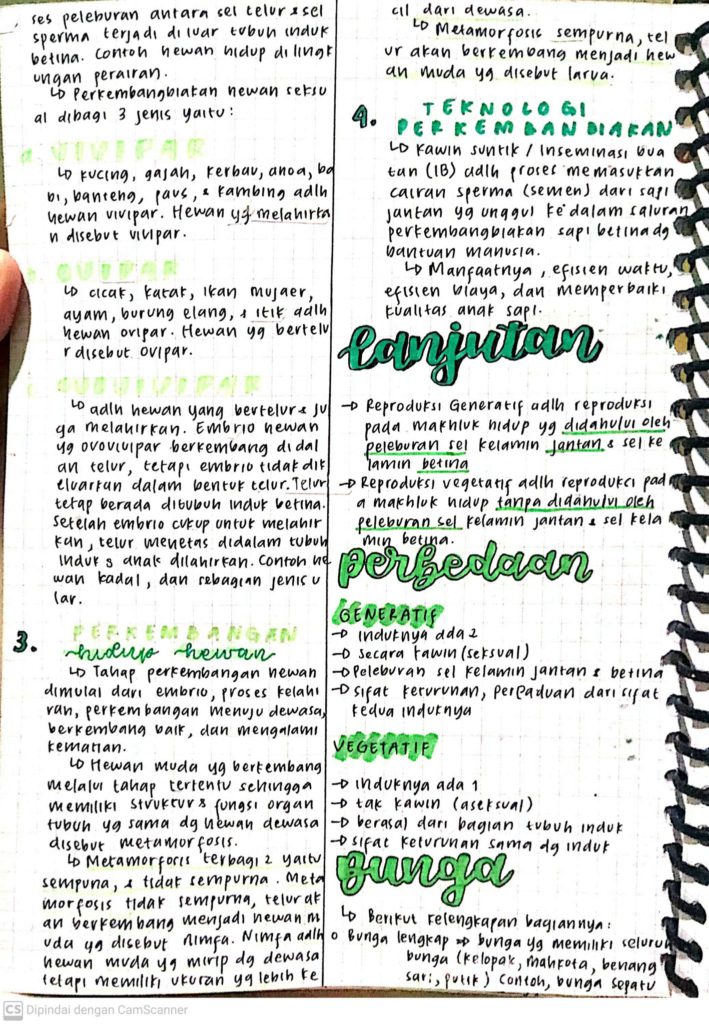 ses peleburan antara sel telur & sel
sperma terjadi di luar tubuh induk
betina. Contoh hewan hidup di lingk
ungan perairan.
↳ Perkembangbiakan hewan seksu
al dibagi 3 jenis yaitu:
a. VIVIPAR
↳ kucing, gajah, kerbau, anoa, ba
bi, banteng, paus, & kambing adlh
hewan vivipar. Hewan yg melahirka
n disebut vivipar.
OVIPAR
↳ cicak, katak, ikan mujaer,
ayam, burung elang, & itik adlh
hewan ovipar. Hewan yg bertelu
r disebut ovipar.
OVOVIVIPAR
↳ adlh hewan yang bertelur & ju
ga melahirkan. Embrio hewan
yg ovovivipar berkembang di dal
an telur, tetapi embrio tidak dik
eluarkan dalam bentuk telur. Telur
tetap berada ditubuh induk betina.
Setelah embrio cukup untuk melahir
kan, telur menetas didalam tubuh
induk & anak dilahirkan. Contoh he
wan kadal, dan sebagian jenis u
lar.
3. PERKEMBANGAN
hidup hewan
↳ Tahap perkembangan hewan
dimulai dari embrio, proses kelahi
ran, perkembangan menuju dewasa,
berkembang baik, dan mengalami
kematian.
↳ Hewan muda yg berkembang
melalui tahap tertentu sehingga
memiliki struktur & fungsi organ
tubuh yg sama dg hewan dewasa
disebut metamorfosis.
↳ Metamorfosis terbagi 2 yaitu
sempuna, & tidak sempurna. Meta
morfosis tidak sempurna, telur ak
an berkembang menjadi hewan m
uda yg disebut nimfa. Nimfa adlh
hewan muda yg mirip dg dewasa
tetapi memiliki ukuran yg lebih ke
cil dari dewasa.
↳ Metamorfosis sempurna, tel
ur akan berkembang menjadi hew
an muda yg disebut larva.
4. TEKNOLOGI
PERKEMBANDIAKAN
↳ Kawin suntik / Inseminasi bua
tan (IB) adlh proses memasukkan
cairan sperma (semen) dari sapi
jantan yg unggul ke dalam saluran
perkembangbiakan sapi betina dg
bantuan manusia.
↳ Manfaatnya, efisien waktu,
efisien biaya, dan memperbaiki
kualitas anak sapi.
lanjutan
→ Reproduksi Generatif adlh reproduksi
pada makhluk hidup yg didahului oleh
peleburan sel kelamin jantan & sel ke
lamin betina
→ Reproduksi vegetatif adlh reproduksi pad
a makhluk hidup tanpa didahului oleh
peleburan sel kelamin jantan & sel kela
min betina.
perbedaan
GENERATIF
→ Induknya ada 2
→ Secara kawin (seksual)
→ Peleburan sel kelamin jantan & betina
→ Sifat keturunan, perpaduan dari sifat
kedua induknya
VEGETATIF
→ induknya ada 1
→ tak kawin (aseksual)
→ berasal dari bagian tubuh induk
→ sifat keturunan sama dg induk
Bunga
↳ Berikut kelengkapan bagiannya:
o Bunga lengkap ⇒ bunga yg memiliki seluruh
bunga (kelopak, mahkota, benang
sari, putik) Contoh, bunga sepatu
CS Dipindai dengan CamScanner